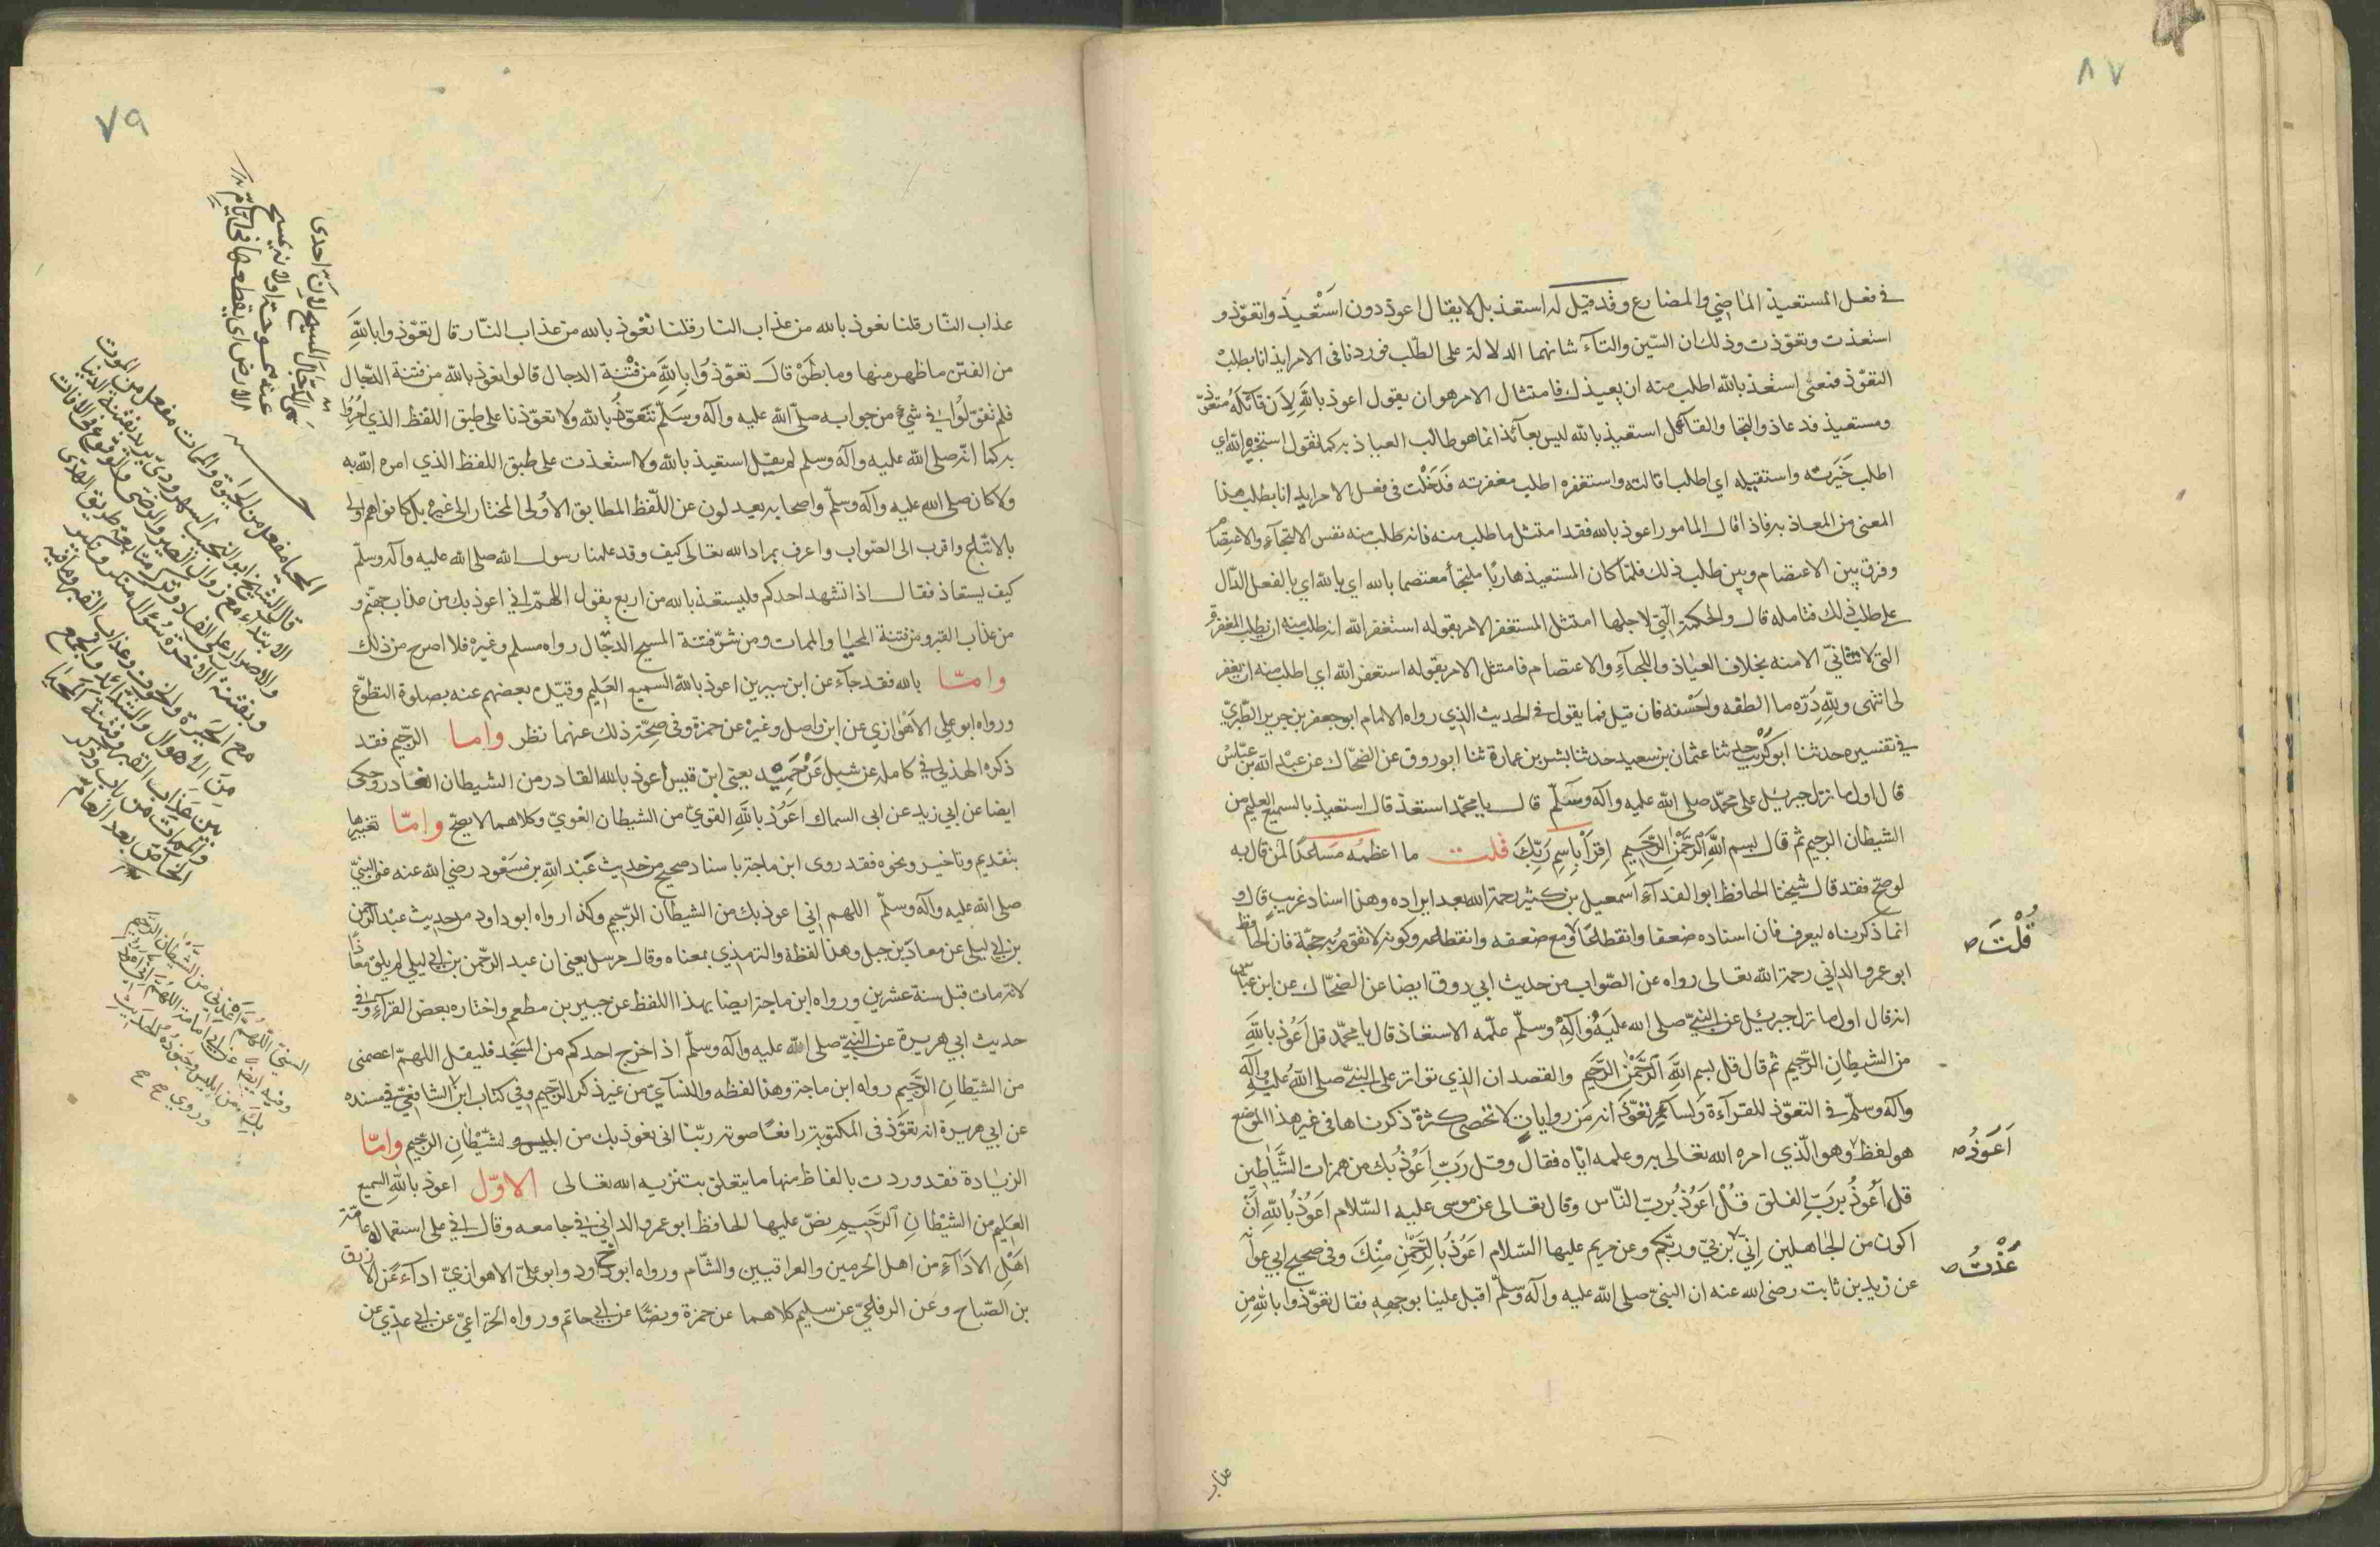 ٨٧
في فعل المستعيذ الماضي والمضارع وقد قيل له استعذ بل لا يقال الا اعوذ دون اَسْتَعيذ واتعوّذ و
استعذت وتعوّذت وذلك ان السّين والتآء شانهما الدلالة على الطّلب فوردتا فى الامر ايذانا بطلب
التعوّذ فمعنى استعذ بالله اطلب منه ان يعيذك فامتثال الامر هو ان يقول اعوذ باللهِ لِاَن قآئله متعوّذ
ومستعيذ قد عاذ والتجا والقآئل استعيذ بالله ليس بعآئذ انما هو طالب العياذ به كما تقول استخير الله اي
اطلب خَيَرته واستقيله اي اطلب اقالته واستغفره اطلب مغفرته فدَخَلت فى فعل الامر ايذانا بطلب هذا
المعنى من المعاذ به فاذا قال المامور اعوذ بالله فقد امتثل ما طلب منه فانه طلب منه نفس الالتجآء والاعتصام
وفرق بين الاعتصام وبين طلب ذلك فلمّا كان المستعيذ هاربًا ملتجأ معتصما بالله اي بالله اي بالفعل الدّال
على طلب ذلك فتامله قال والحكمة الّتي لاجلها امتثل المستغفر الامر بقوله استغفر الله انه طلب منه ان يطلب المغفرة
التي لا تتاتىّ الا منه بخلاف العياذ واللجآء والاعتصام فامتثل الامر بقوله استغفر الله اي اطلب منه ان يغفر
لي انتهى وللهِ دَرّه ما الطفه واحْسَنه فان قيل فما يقول فى الحديث الذي رواه الامام ابو جعفر بن جرير الطّبريّ
في تفسيره حدثنا ابو كُرَيب ثنا عثمان بن سعيد حدثنا بشر بن عمارة ثنا ابو روق عن الضحّاك عن عبد الله بن عبّاس
قال اول ما نزل جبريل على محمّد صلى الله عليه وآله وسلّم قال يا محمّد استعذ قال استعيذ بالسميع العليم من
الشيطان الرجيم ثم قال بسم اللهِ الرَّحمٰنِ الرَّحيم اِقرَأ بِاسِم رَبِّكَ قلت ما اعظمه مساعدًا لمن قال به
لو صحّ فقد قال شيخنا الحافظ ابو الفدآء اسمعيل بن كثير رحمة الله بعد ايراده وهذا اسناد غريب قال و
انما ذكرناه ليعرف فان اسناده ضعفا وانقطاعًا ومع ضعفه وانقطاعه وكونه لا تقوم به حجّة فان الحافظ
قُلْتَ ص
ابو عمرو الداني رحمة الله تعالى رواه عن الصّواب من حديث ابي روق ايضا عن الضحّاك عن ابن عبّاس
انه قال اول ما نزل جبريل عن النّبيّ صلى الله عليه وآله وسلّم علّمه الاستعاذ قال يا محمّد قل اَعُوذ باللهِ
من الشيطانِ الرّجيم ثم قال قل بسم اللهِ الرَّحمٰنِ الرَّحيم والقصد ان الذي تواتر على النبيّ صلى اللهُ عليهِ وآله
وآله وسلّم في التعوّذ للقرآءة ولسآئر تعوّذاته من رواياتٍ لا تحصى كثرة ذكرناها فى غير هذا الموضع
هو لفظ وهو الّذي امره الله تعالى به وعلمه ايّاه فقال وقل رَبّ اَعُوذُ بك من همزات الشَّياطين
اَعَوذُ ص
قل اَعُوذُ بربَّ الفلق قُلْ اَعُوذُ بربّ النّاس وقال تعالى عن موسى عليه السّلام اَعُوذُ باللهِ اَنْ
اكون من الجاهلين اِنّي بربّيّ وربّكم وعن مريم عليها السّلام اَعوُذُ بالرَّحْمٰنِ مِنْكَ وفى صحيح ابي عوانه
عُذْتُ ص
عن زيد بن ثابت رضى الله عنه ان النبيّ صلى الله عليه وآله وسلّم اقبل علينا بوجهِهِ فقال تعوّذوا باللهِ من
عذاب
٧٩
عذاب النّار قلنا نعوذ بالله من عذاب النار قلنا نعْوذ بالله من عذاب النّار قال تعوّذوا باللهِ
من الفتن ما ظهر منها وما بطَن قالَ تعوّذوُا باِللهِ من فتْنة الدجال قالوا نعوذ بالله من فتنة الدّجال
فلم يقوّلوُا في شيْءٍ من جوابه صلّى الله عليه وآله وسلّم نتعوّذ بالله ولا تعوّذنا على طبق اللفظ الذي اُمِرُوا
به كما انّه صلى الله عليه وآله وسلم لم يقل استعيذ بالله ولا استعذت على طبق اللفظ الذي امره الله به
ولا كان صلى الله عليه وآله وسلّم واصحابه يعدلون عن اللّفظ المطابق الاوُلى المختار الى غيرهْ بل كانوا هم اولى
بالاتبّاع واقرب الى الصّواب واعرف بمراد الله تعالى كيف وقد علمنا رسول الله صلى الله عليه وآله وسلّم
كيف يستعاذ فقال اذا تشهد احدكم وليستعذ بالله من اربع يقول اللهمّ اني اعوذ بك من عذاب جهنّم و
من عذاب القبر ومن فتنة المحيا والممات ومن شرّ فتنة المسيح الدجّال رواه مسلم وغيرهْ فلا اصرح من ذلك
وامّا بالله فقد جآء عن ابن سيرين اعوذ بالله السميع العَليم وقيّده بعضهم عنه بصلوة التطوّع
ورواه ابو علي الاهْوازي عن ابن واصل وغيرهْ عن حمزة وفى صِحّة ذلك عنهما نظر واما الرجّيم فقد
ذكره الهذلي في كامله عن شبل عَنْ حَمِيْد يعني ابن قيس اعوذ بالله القادر من الشيطان الغادر وحكى
ايضا عن ابي زيد عن ابى السماك اَعُوذُ باللهِ القويّ من الشيطان الغويّ وكلاهما لا يصحّ وامّا تغييرها
بتقديم وتاخير ونحوه فقد روى ابن ماجة باسناد صحيح من حديث عَبْد اللهِ بن مَسعُود رضي الله عنه عن النبيّ
صلى الله عليه وآله وسلّم اللهم اني اعوذ بك من الشيطان الرّجيم وكذا رواه ابو داود من حديث عبد الرّحمن
بن ابي ليلى عن معاذ بن جبل وهذا لفظه والترمذي بمعناه وقال مرسل يعنى ان عبد الرّحمن بن ابي ليلى لم يلق معاذًا
لانّه مات قبل سنة عشرين ورواه ابن ماجة ايضا بهذا اللفظ عن جبير بن مطعم واختاره بعض القرآءِ وفي
حديث ابي هريرة عن النّبيّ صلى الله عليه وآله وسلّم اذا خرج احدكم من المسَجْد فليقل اللهمّ اعصمنى
من الشيّطانِ الرَّجيم رواه ابن ماجة وهذا لفظه والنسآئي من غير ذكر الرّجيم وفي كتاب ابن الشافعيّ في مسنده
عن ابي هريرة انه تعَوَّذ فى المكتوبة رافعًا صوته ربّنا انى نعوذ بك من ابليس الشّيْطانِ الرجّيم وامّا
الزيادة فقد وردت بالفاظ منها ما يتعلق بتنزيه الله تعالى الاوّل اعوذ باللهِ السميع
العَليم من الشيْطانِ الرَّجَيمِ نصّ عليها الحافظ ابو عمرو الداني في جامعه وقال اني على استعماله عامّة
اَهْلِ الاَدَآءِ من اهل الحرمين والعراقيين والشّام ورواه ابو داود وابو عليّ الاهوازيّ اداءً عَن الازرق
بن الصّباح وعَن الرفاعيّ عن سليم كلاهما عن حمزة ونصًّا عن ابي حاتم ورواه الخزاعيّ عن ابي عديّ عن
سمى الدّجّال المسيح لاِنَّ احدى
عينيه ممسوحة اولانه يمسح
الارض اى يقطعها فى ايّام
المحيا مفعل من الحيوة والممات مفعل من الموت
قال الشيخ ابو النجيب السهروردىّ يريد بفتنة الدنيا
الابتلاء مع زوال الصبر والرضى والوقوع فى الافات
والاصرار على الفساد وترك متابعة طريق الهدى
وبفتنة الاخرة سُؤال منكر ونكير
مع الحَيرة والخوف وعذاب القبر وما فيه
مِنَ الأهوال والشدائد والجمع
بين عَذاب القبر وفتنة المحيَا
والممات من باب ذكر
الخاصّ بعد العام